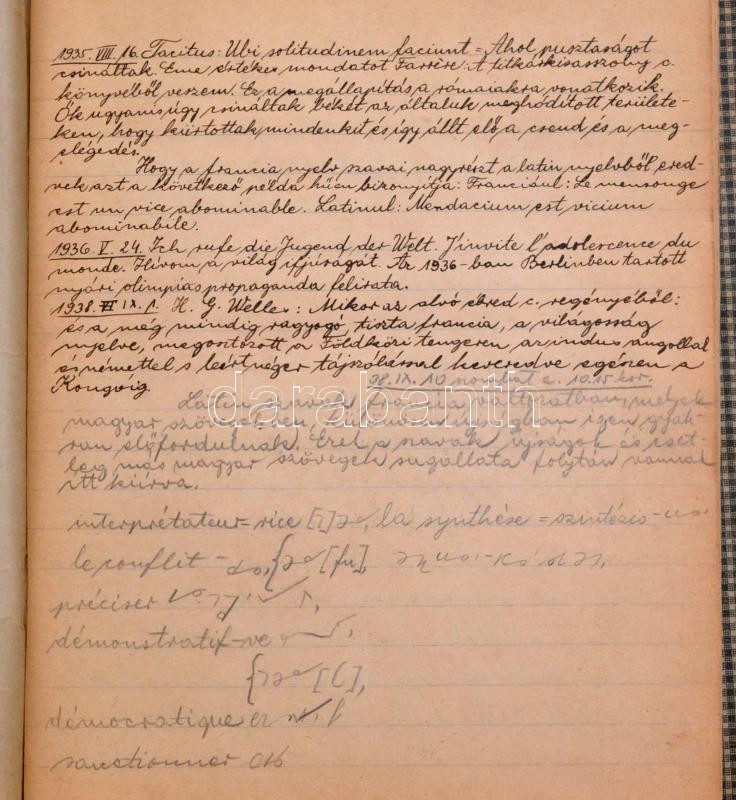 1935. VIII. 16. Tacitus: Ubi solitudinem faciunt = Ahol pusztaságot
csináltak. Eme értékes mondatot Farrère: A titkárkisasszony c.
könyvéből veszem. Ez a megállapítás a rómaiakra vonatkozik.
Ők ugyanis úgy csináltak békét az általuk meghódított területe-
ken, hogy kiirtottak mindenkit és így állt elő a csend és a meg-
elégedés.
Hogy a francia nyelv szavai nagyrészt a latin nyelvből ered-
nek azt a következő példa hűen bizonyítja: Franciául: Le mensonge
est un vice abominable. Latinul: Mendacium est vicium
abominabile.
1936. V. 24. Ich rufe die Jugend der Welt. J'invite l'adolescence du
monde. Hívom a világ ifjúságát. Az 1936-ban Berlinben tartott
nyári olimpias propaganda felirata.
1938. IX. 1. H. G. Welles: Mikor az alvó ébred c. regényéből:
és a még mindig ragyogó, tiszta francia, a világosság
nyelve, megosztozott a Földközi tengeren az indus angollal
és némettel s leért néger tájszólással keveredve egészen a
Kongóig.
38. IX. 10 szombat e. 10.15 kor.
Latin szavak francia változatban, melyek
magyar szövegekben igen gyak-
ran előfordulnak. Ezek a szavak újságok és eset-
leg más magyar szövegek sugallata folytán vannak
itt kiírva.
interprétateur = rice la synthèse = szintézis
le conflit
préciser
démonstratif-ve
démocratique
sanctionner
darabanth